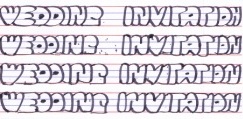 WEDDING INVITATION
WEDDING INVITATION
WEDDING INVITATION
WEDDING INVITATION